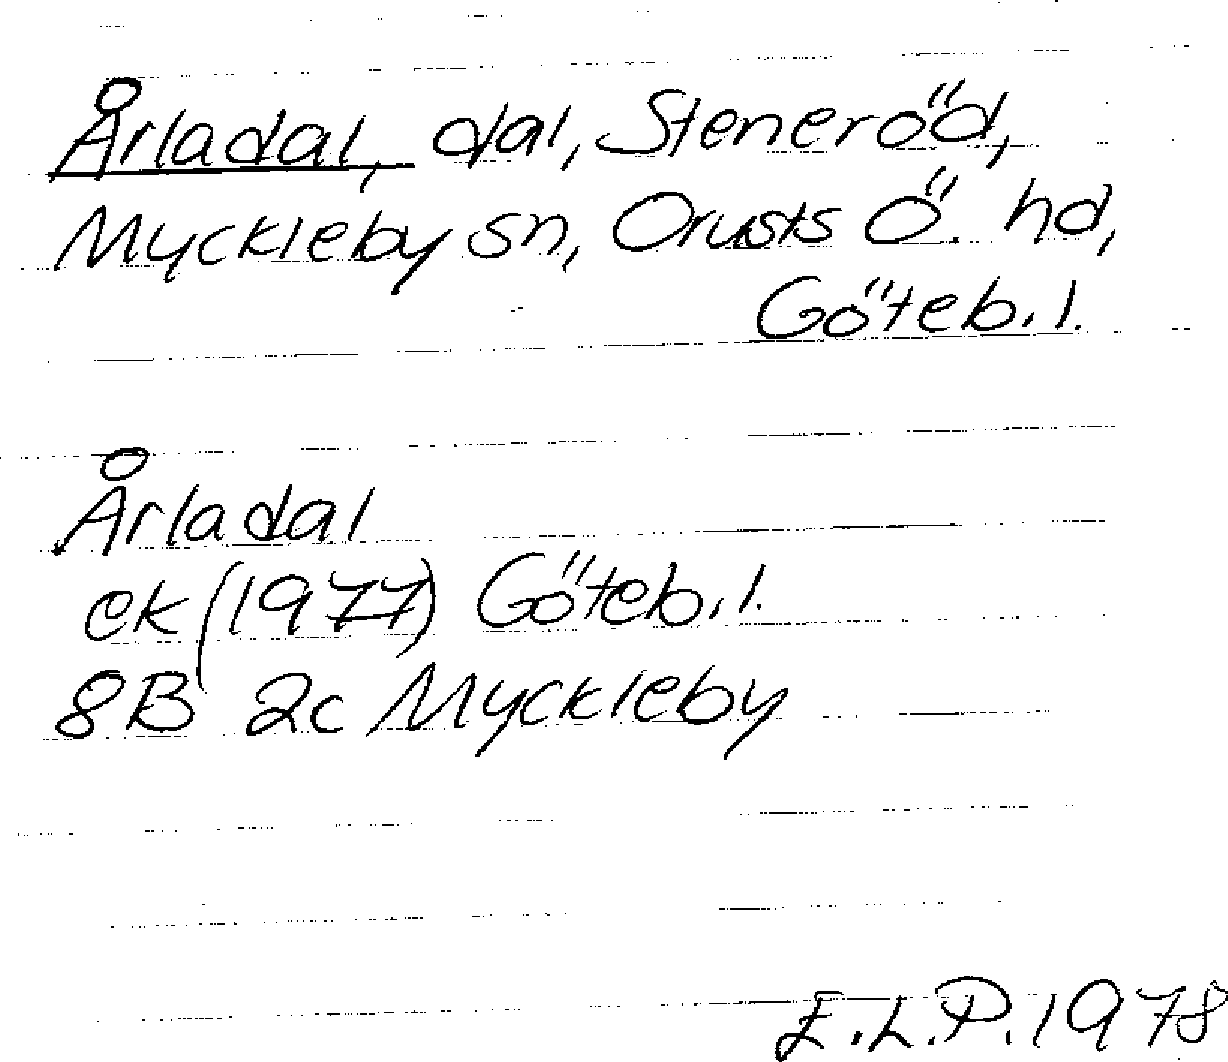 Årladal, dal, Steneröd,
Myckleby sn, Orusts Ö. hd,
Göteb. l.
Årladal
ek (1977) Göteb. l.
8B 2c Myckleby
E.L.P. 1978